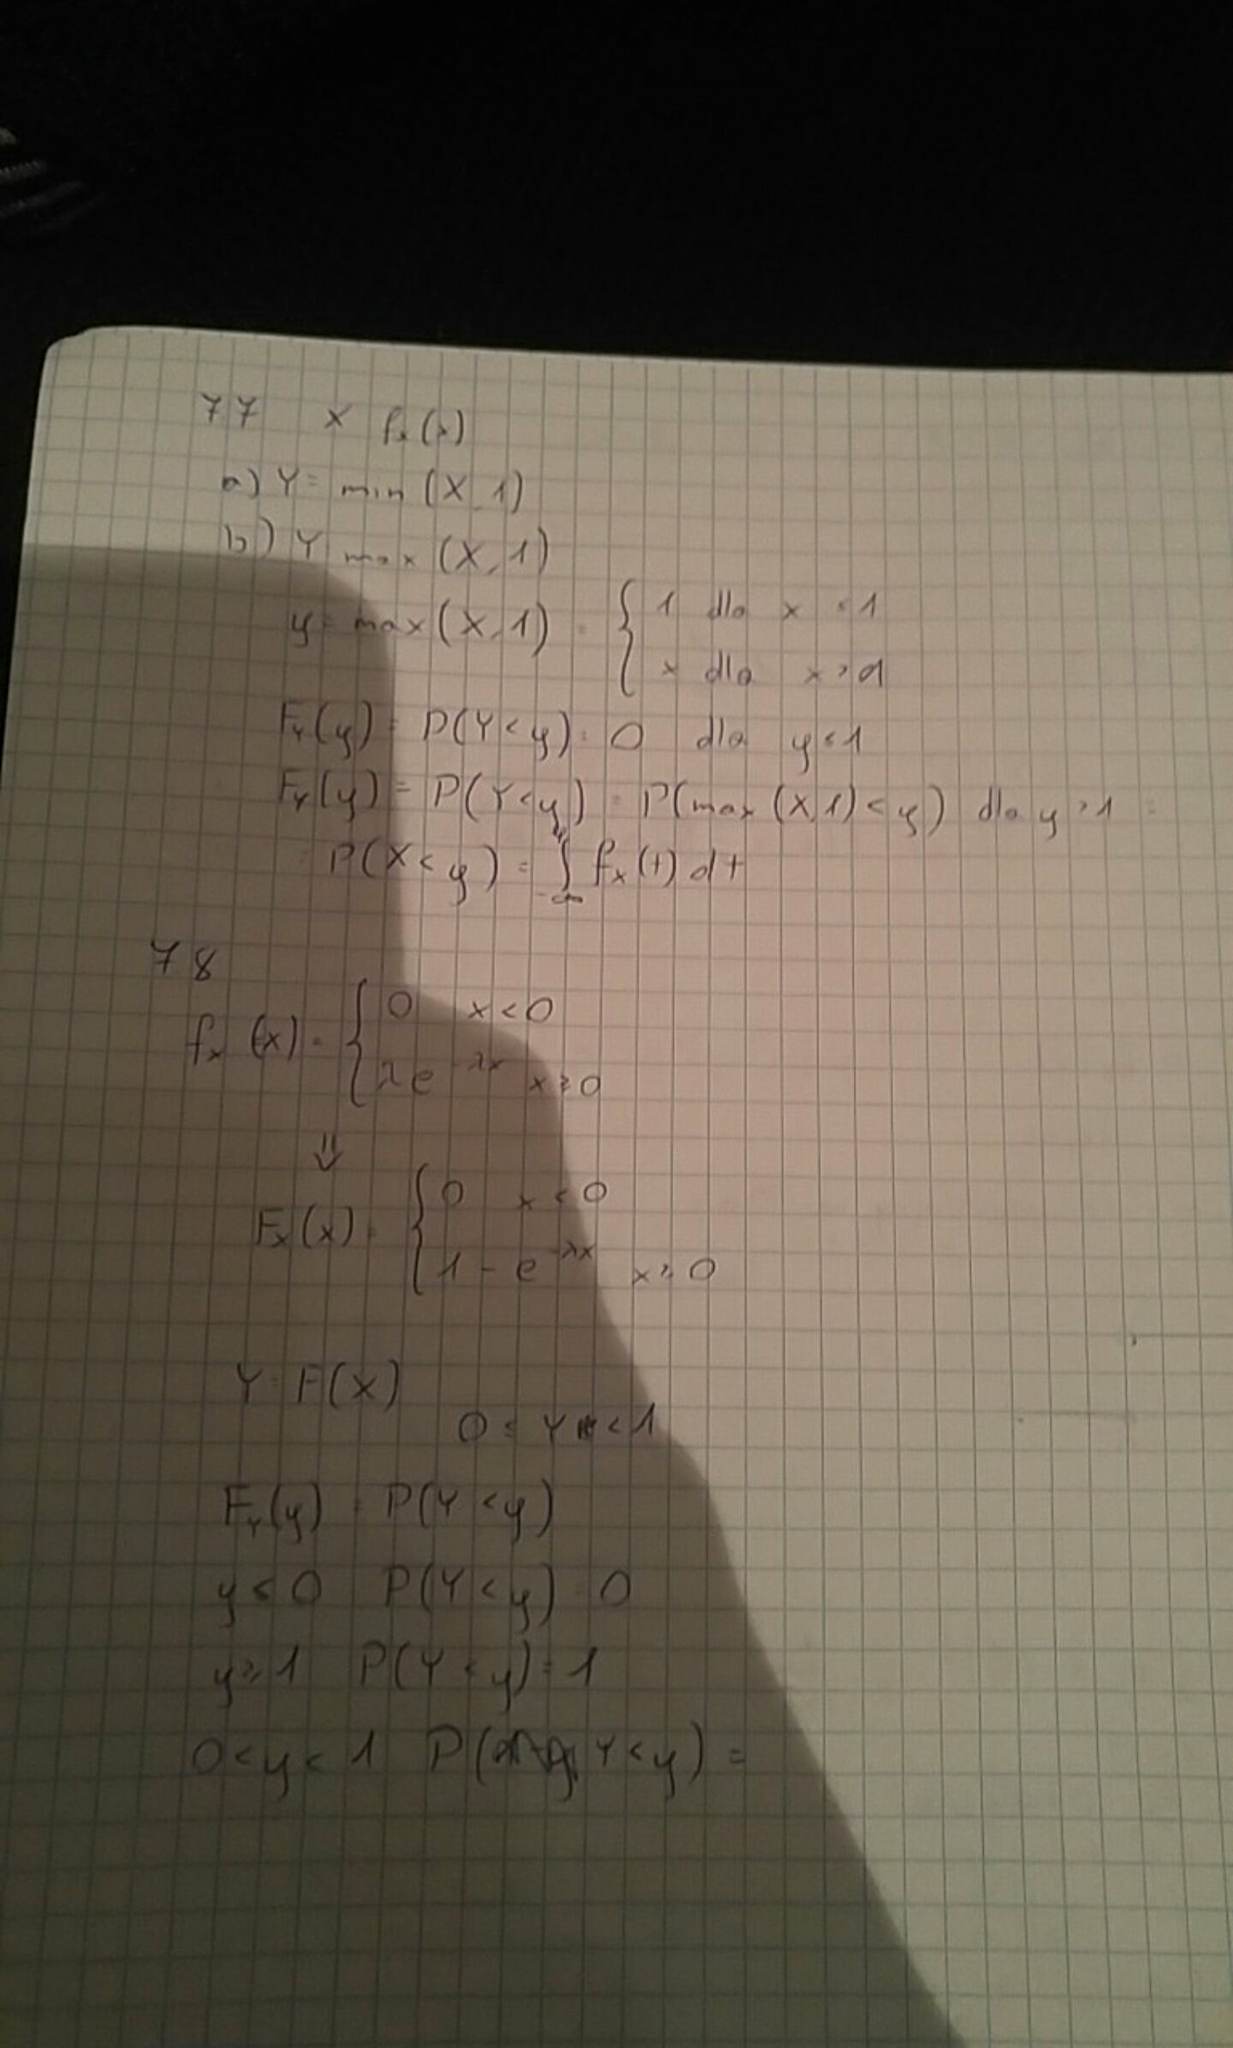 77 X fₓ(x)
a) Y = min (X, 1)
b) Y max (X, 1)
y = max (X, 1) = { 1 dla x ≤ 1
x dla x > 1
F_Y(y) = P(Y < y) = 0 dla y ≤ 1
F_Y(y) = P(Y < y) = P(max (X, 1) < y) dla y > 1 =
= P(X < y) = ∫_{-∞}^{y} fₓ(t) dt
78
fₓ (x) = { 0 x < 0
λe^{-λx} x ≥ 0
⇓
Fₓ(x) = { 0 x < 0
1 - e^{-λx} x ≥ 0
Y = F(X)
0 ≤ Y < 1
F_Y(y) = P(Y < y)
y ≤ 0 P(Y < y) = 0
y ≥ 1 P(Y < y) = 1
0 < y < 1 P( Y < y) =